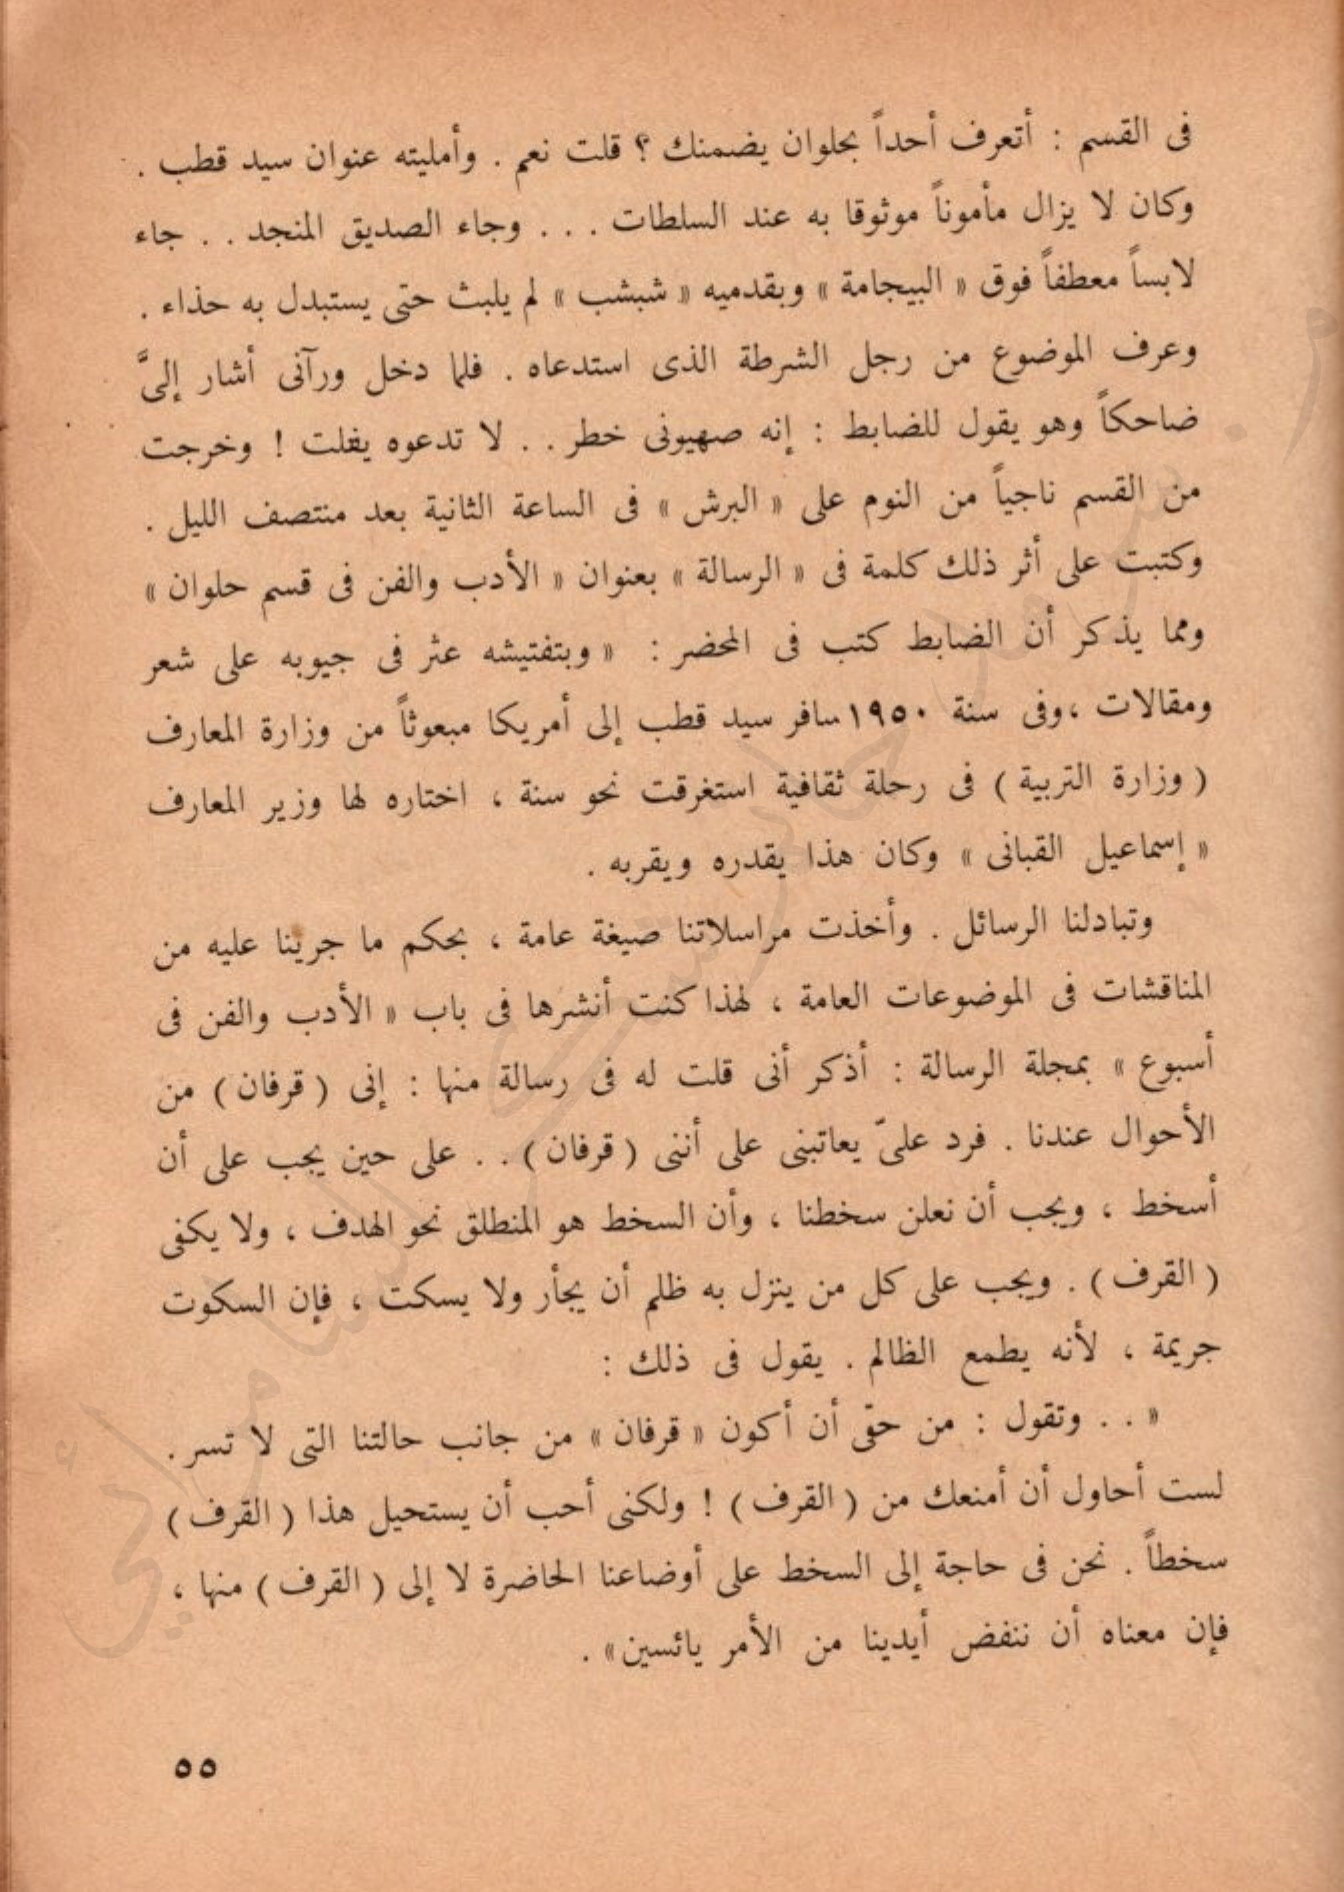 فى القسم : أتعرف أحداً بحلوان يضمنك ؟ قلت نعم . وأمليته عنوان سيد قطب .
وكان لا يزال مأموناً موثوقا به عند السلطات . . . وجاء الصديق المنجد . . جاء
لابساً معطفاً فوق « البيجامة » وبقدميه « شبشب » لم يلبث حتى يستبدل به حذاء .
وعرف الموضوع من رجل الشرطة الذى استدعاه . فلما دخل ورآنى أشار إلىَّ
ضاحكاً وهو يقول للضابط : إنه صهيونى خطر . . لا تدعوه يفلت ! وخرجت
من القسم ناجياً من النوم على « البرش » فى الساعة الثانية بعد منتصف الليل .
وكتبت على أثر ذلك كلمة فى « الرسالة » بعنوان « الأدب والفن فى قسم حلوان »
ومما يذكر أن الضابط كتب فى المحضر : « وبتفتيشه عثر فى جيوبه على شعر
ومقالات ،وفى سنة ١٩٥٠ سافر سيد قطب إلى أمريكا مبعوثاً من وزارة المعارف
( وزارة التربية ) فى رحلة ثقافية استغرقت نحو سنة ، اختاره لها وزير المعارف
« إسماعيل القبانى » وكان هذا يقدره ويقربه .
وتبادلنا الرسائل . وأخذت مراسلاتنا صيغة عامة ، بحكم ما جرينا عليه من
المناقشات فى الموضوعات العامة ، لهذا كنت أنشرها فى باب « الأدب والفن فى
أسبوع » بمجلة الرسالة : أذكر أنى قلت له فى رسالة منها : إنى ( قرفان ) من
الأحوال عندنا . فرد علىّ يعاتبنى على أننى ( قرفان ) . . على حين يجب على أن
أسخط ، ويجب أن نعلن سخطنا ، وأن السخط هو المنطلق نحو الهدف ، ولا يكفى
( القرف ) . ويجب على كل من ينزل به ظلم أن يجأر ولا يسكت ، فإن السكوت
جريمة ، لأنه يطمع الظالم . يقول فى ذلك :
« . . وتقول : من حقى أن أكون « قرفان » من جانب حالتنا التى لا تسر .
لست أحاول أن أمنعك من ( القرف ) ! ولكنى أحب أن يستحيل هذا ( القرف )
سخطاً . نحن فى حاجة إلى السخط على أوضاعنا الحاضرة لا إلى ( القرف ) منها ،
فإن معناه أن ننفض أيدينا من الأمر يائسين» .
٥٥